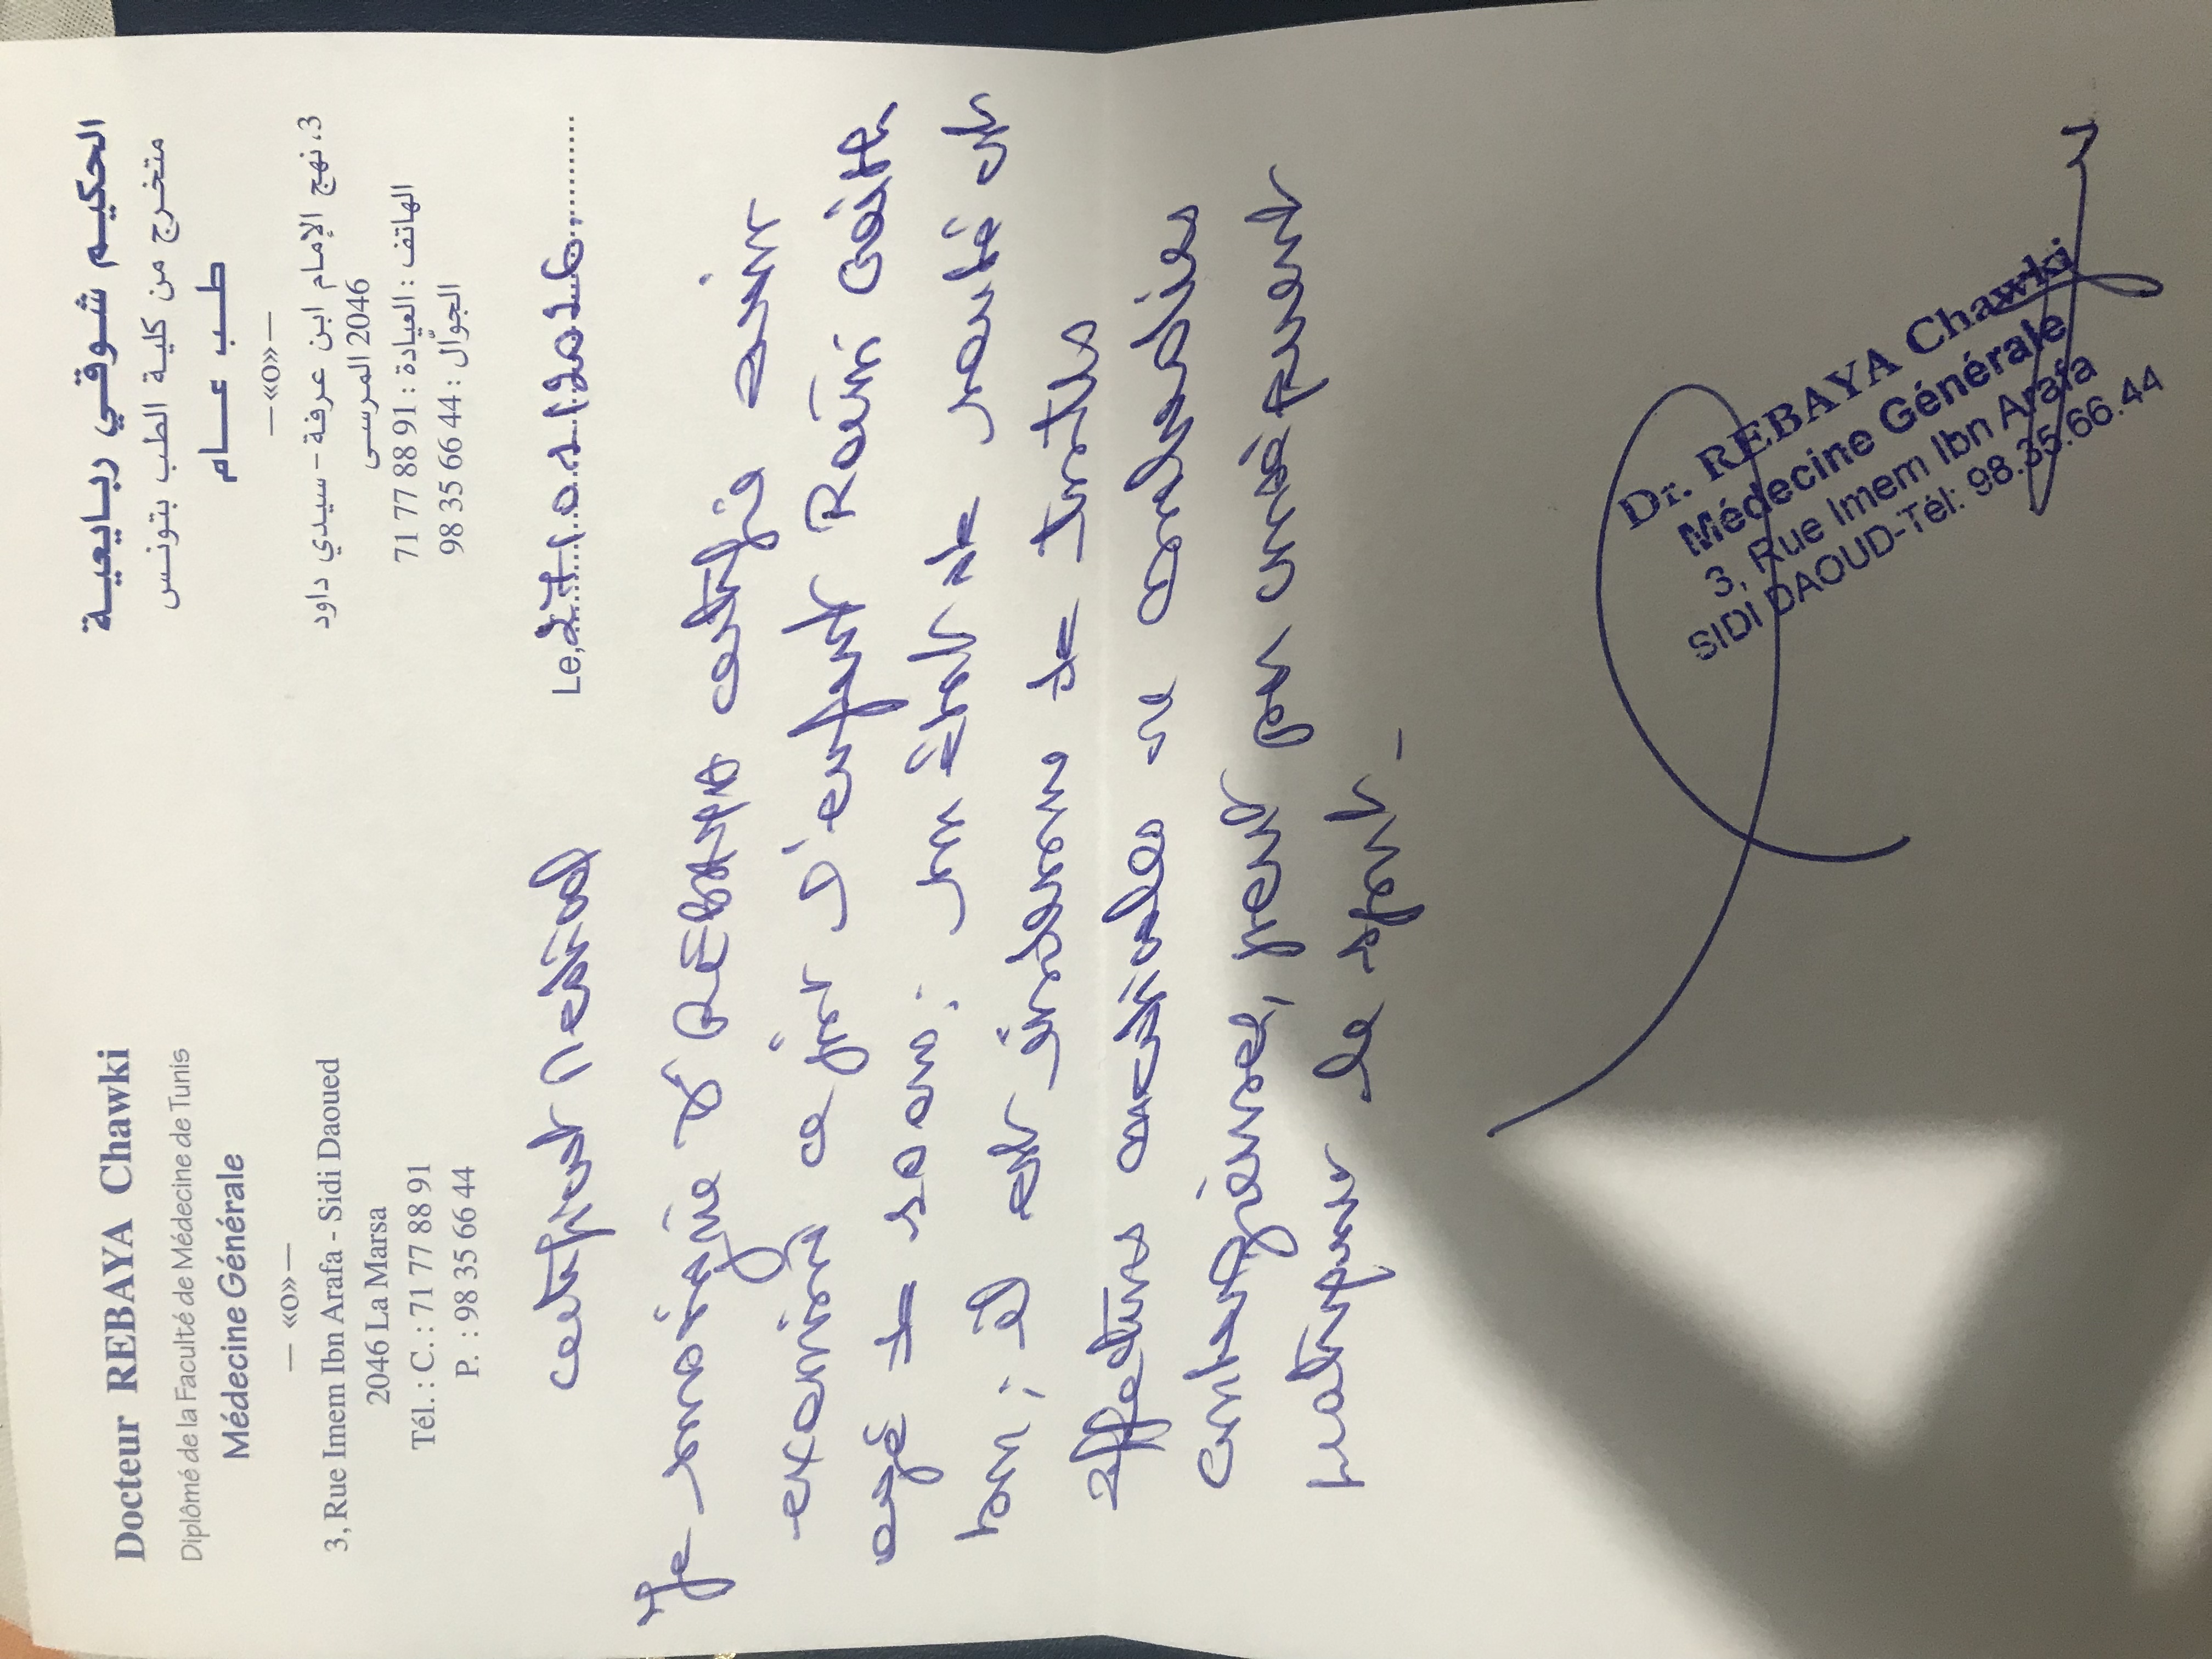 Docteur REBAYA Chawki
Diplômé de la Faculté de Médecine de Tunis
Médecine Générale
— «o» —
3, Rue Imem Ibn Arafa - Sidi Daoued
2046 La Marsa
Tél. : C. : 71 77 88 91
P. : 98 35 66 44
الحكيم شوقي ربايعية
متخرج من كلية الطب بتونس
طب عام
— «o» —
3، نهج الإمام ابن عرفة - سيدي داود
2046 المرسى
الهاتف : العيادة : 71 77 88 91
الجوّال : 98 35 66 44
Le,
certificat Médical
Je soussigné Dr REBAYA certifie avoir
examiné ce jour l'enfant
agé de ans ; son état de santé est
bon ; il est indemne de toutes
affections cardiales ou maladies
contagieuses, peut par conséquent
pratiquer le sport. -
Dr. REBAYA Chawki
Médecine Générale
3, Rue Imem Ibn Arafa
SIDI DAOUD-Tél: 98.35.66.44